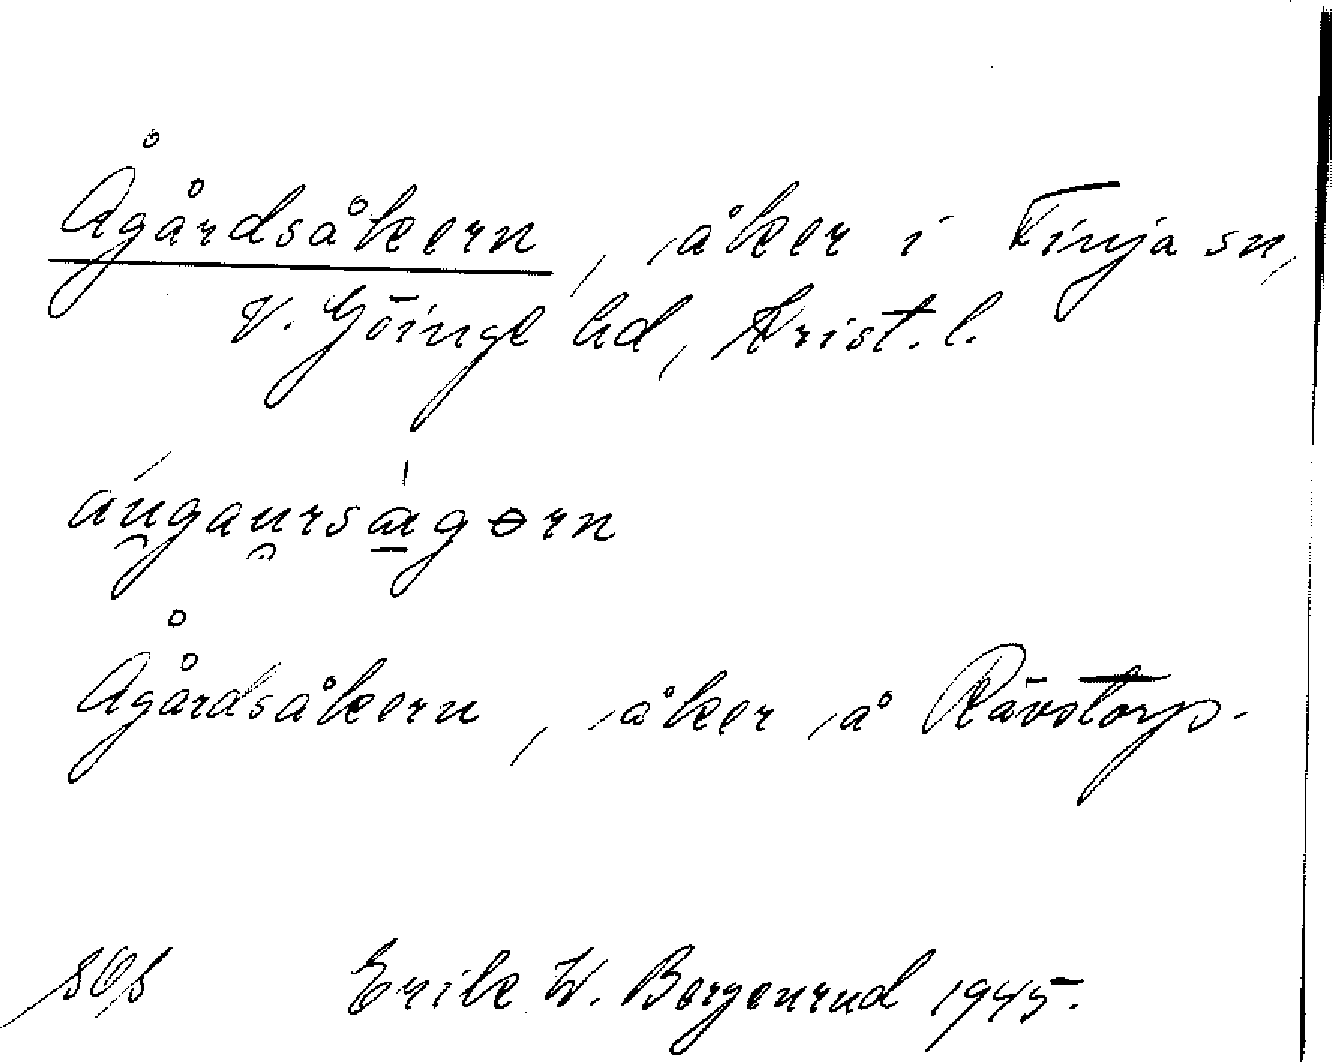 Ågårdsåkern, åker i Finja sn,
V. Göinge hd, Krist. l.
Ågårdsåkern, åker å Rävstorp.
Erik W. Borgenrud 1945.